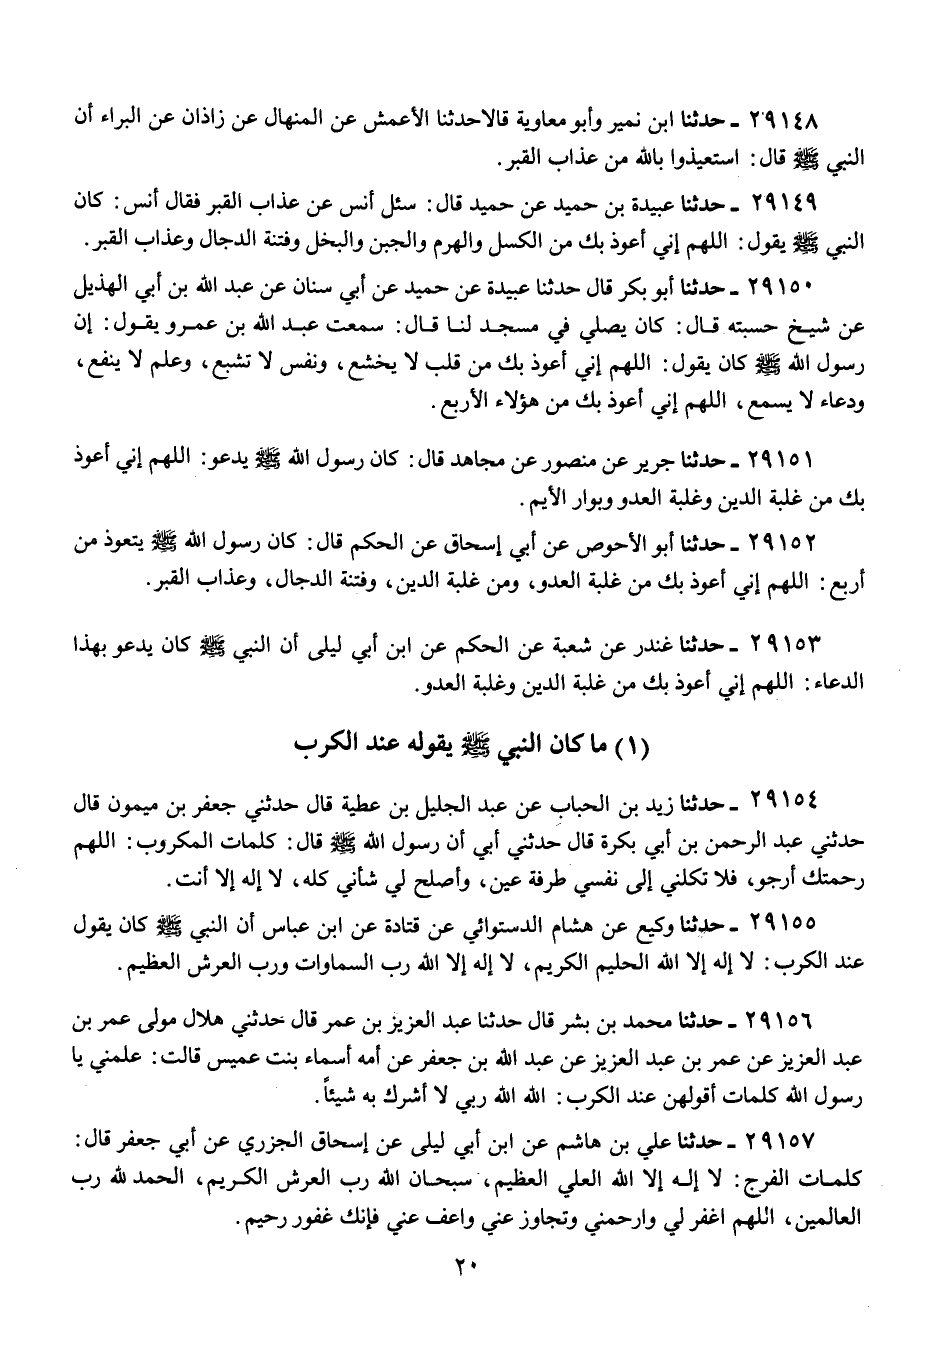 ٢٩١٤٨ ـ حدثنا ابن نمير وأبو معاوية قالاحدثنا الأعمش عن المنهال عن زاذان عن البراء أن
النبي ﷺ قال: استعيذوا بالله من عذاب القبر.
٢٩١٤٩ ـ حدثنا عبيدة بن حميد عن حميد قال: سئل أنس عن عذاب القبر فقال أنس: كان
النبي ﷺ يقول: اللهم إني أعوذ بك من الكسل والهرم والجبن والبخل وفتنة الدجال وعذاب القبر.
٢٩١٥٠ ـ حدثنا أبو بكر قال حدثنا عبيدة عن حميد عن أبي سنان عن عبد الله بن أبي الهذيل
عن شيخ حسبته قال: كان يصلي في مسجد لنا قال: سمعت عبد الله بن عمرو يقول: إن
رسول الله ﷺ كان يقول: اللهم إني أعوذ بك من قلب لا يخشع، ونفس لا تشبع، وعلم لا ينفع،
ودعاء لا يسمع، اللهم إني أعوذ بك من هؤلاء الأربع.
٢٩١٥١ ـ حدثنا جرير عن منصور عن مجاهد قال: كان رسول الله ﷺ يدعو: اللهم إني أعوذ
بك من غلبة الدين وغلبة العدو وبوار الأيم.
٢٩١٥٢ ـ حدثنا أبو الأحوص عن أبي إسحاق عن الحكم قال: كان رسول الله ﷺ يتعوذ من
أربع: اللهم إني أعوذ بك من غلبة العدو، ومن غلبة الدين، وفتنة الدجال، وعذاب القبر.
٢٩١٥٣ ـ حدثنا غندر عن شعبة عن الحكم عن ابن أبي ليلى أن النبي ﷺ كان يدعو بهذا
الدعاء: اللهم إني أعوذ بك من غلبة الدين وغلبة العدو.
(١) ما كان النبي ﷺ يقوله عند الكرب
٢٩١٥٤ ـ حدثنا زيد بن الحباب عن عبد الجليل بن عطية قال حدثني جعفر بن ميمون قال
حدثني عبد الرحمن بن أبي بكرة قال حدثني أبي أن رسول الله ﷺ قال: كلمات المكروب: اللهم
رحمتك أرجو، فلا تكلني إلى نفسي طرفة عين، وأصلح لي شأني كله، لا إله إلا أنت.
٢٩١٥٥ ـ حدثنا وكيع عن هشام الدستوائي عن قتادة عن ابن عباس أن النبي ﷺ كان يقول
عند الكرب: لا إله إلا الله الحليم الكريم، لا إله إلا الله رب السماوات ورب العرش العظيم.
٢٩١٥٦ ـ حدثنا محمد بن بشر قال حدثنا عبد العزيز بن عمر قال حدثني هلال مولى عمر بن
عبد العزيز عن عمر بن عبد العزيز عن عبد الله بن جعفر عن أمه أسماء بنت عميس قالت: علمني يا
رسول الله كلمات أقولهن عند الكرب: الله الله ربي لا أشرك به شيئاً.
٢٩١٥٧ ـ حدثنا علي بن هاشم عن ابن أبي ليلى عن إسحاق الجزري عن أبي جعفر قال:
كلمات الفرج: لا إله إلا الله العلي العظيم، سبحان الله رب العرش الكريم، الحمد لله رب
العالمين، اللهم اغفر لي وارحمني وتجاوز عني واعف عني فإنك غفور رحيم.
٢٠